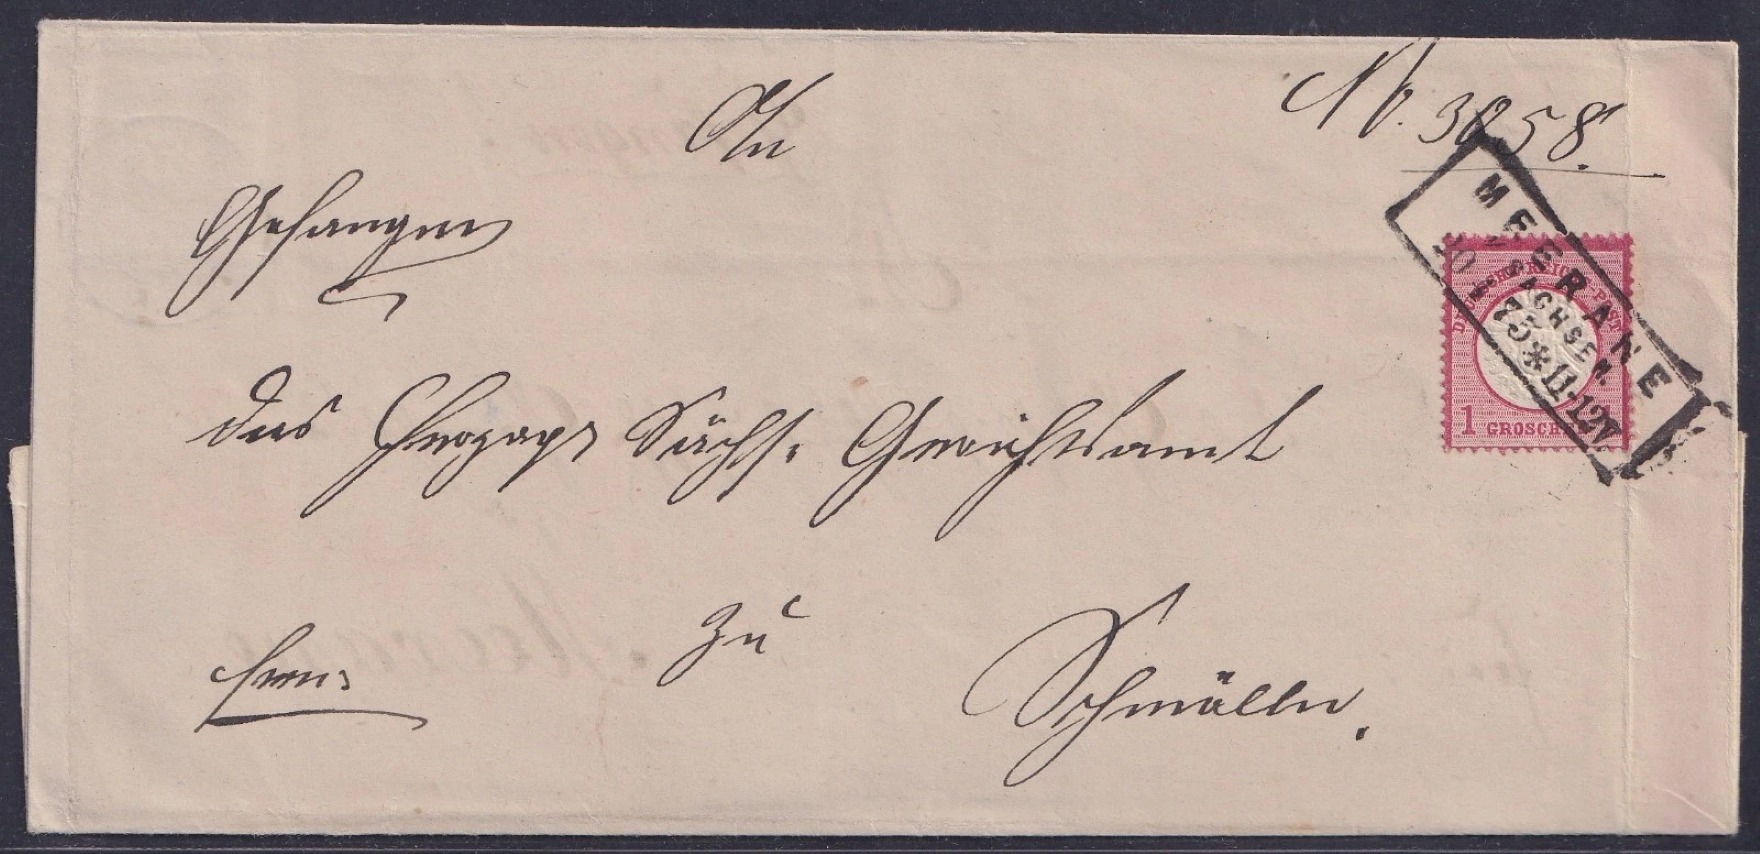 An
No. 3058.
das Herzogl. Sächs. Gerichtsamt
zu
Schmölln.
MEERANE
SACHSEN.
75 * 11-12V
DEUTSCHE REICHS-POST
1 GROSCHEN